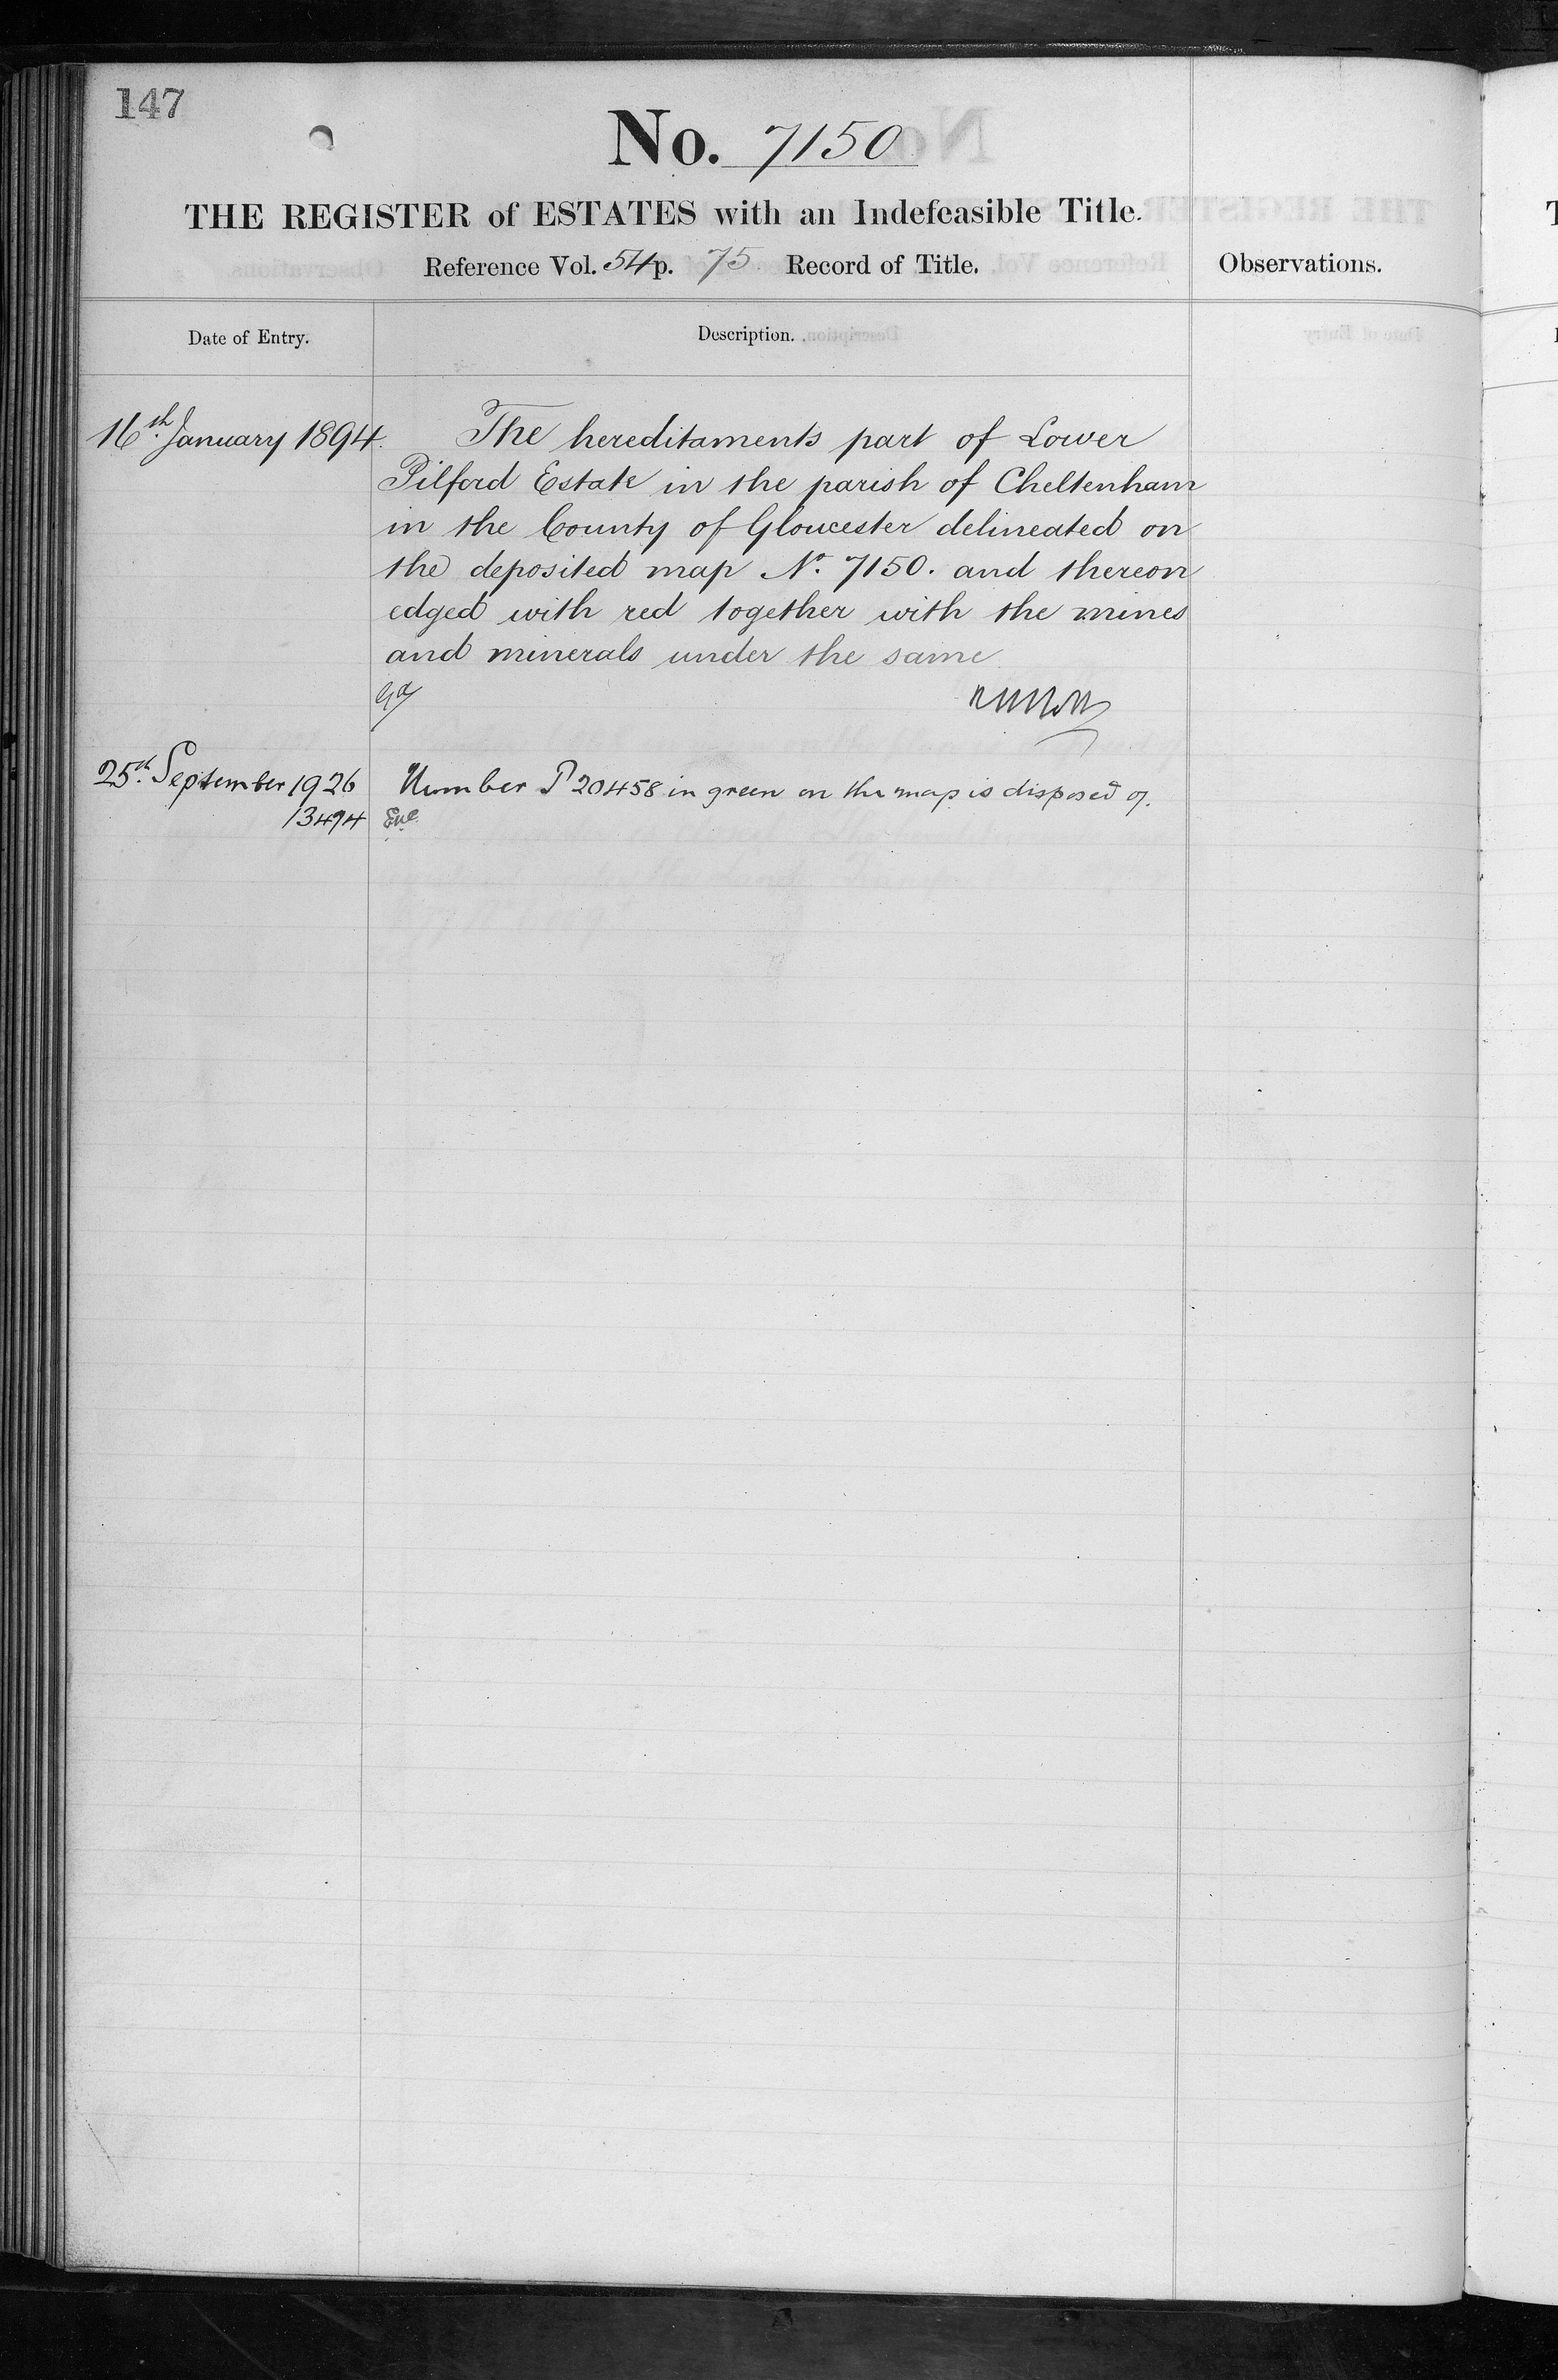 147
No. 7150
THE REGISTER of ESTATES with an Indefeasible Title.
Reference Vol. 54 p. 75 Record of Title.
Observations.
Date of Entry.
Description.
16th January 1894.
The hereditaments part of Lower
Pilford Estate in the parish of Cheltenham
in the County of Gloucester delineated on
the deposited map No. 7150. and thereon
edged with red together with the mines
and minerals under the same
25th September 1926
Number P20458 in green on the map is disposed of.
13494